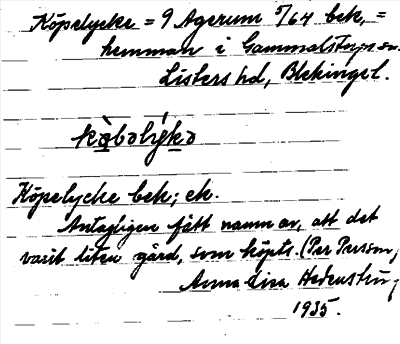 Köpelycke = 9 Agerum 5/64 bek, =
hemman i Gammalstorps sn.
Listers hd, Blekinge l.
kàbəlýkə
Köpelycke bek; ek.
Antagligen fått namn av, att det
varit liten gård, som köpts. (Per Persson,
Anna-Lisa Hedenstru
1935.